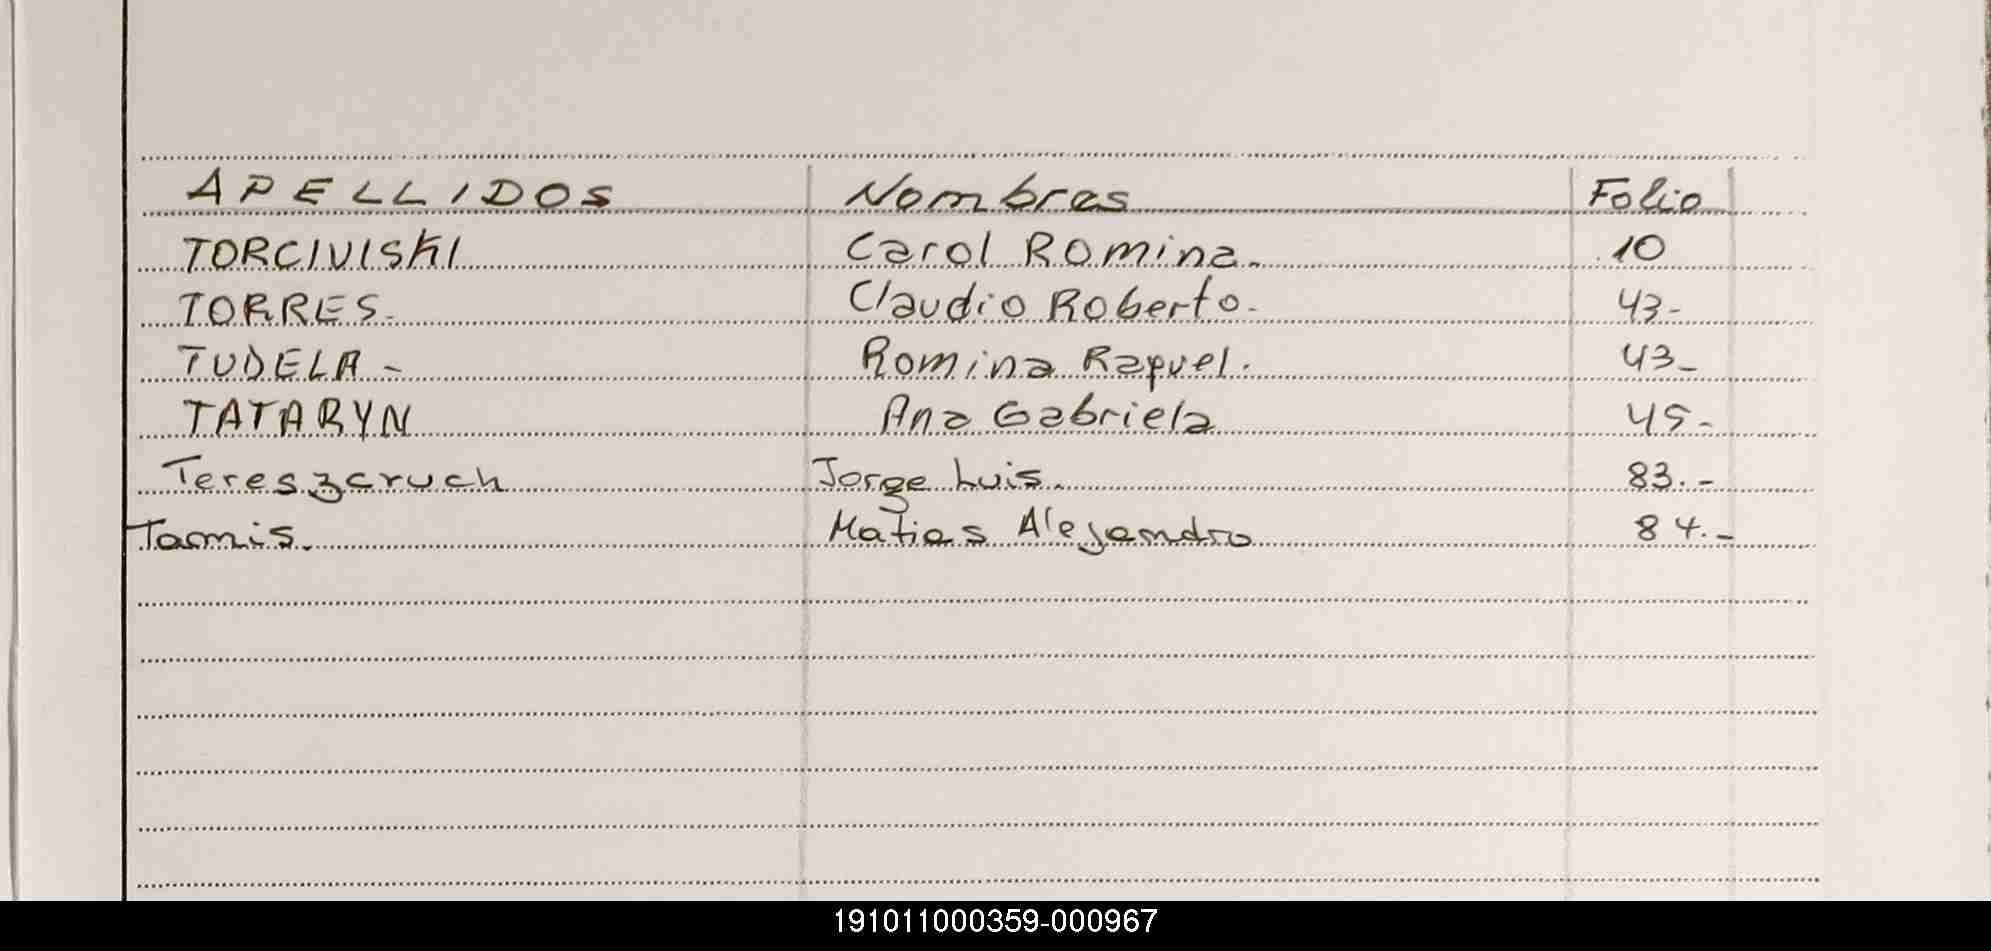 APELLIDOS Nombres Folio
TORCIVISKI Carol Romina. 10
TORRES. Claudio Roberto. 43-
TUDELA - Romina Raquel. 43-
TATARYN Ana Gabriela 45-
Tereszcruch Jorge Luis. 83.-
Tamis. Matias Alejandro 84.-
191011000359-000967